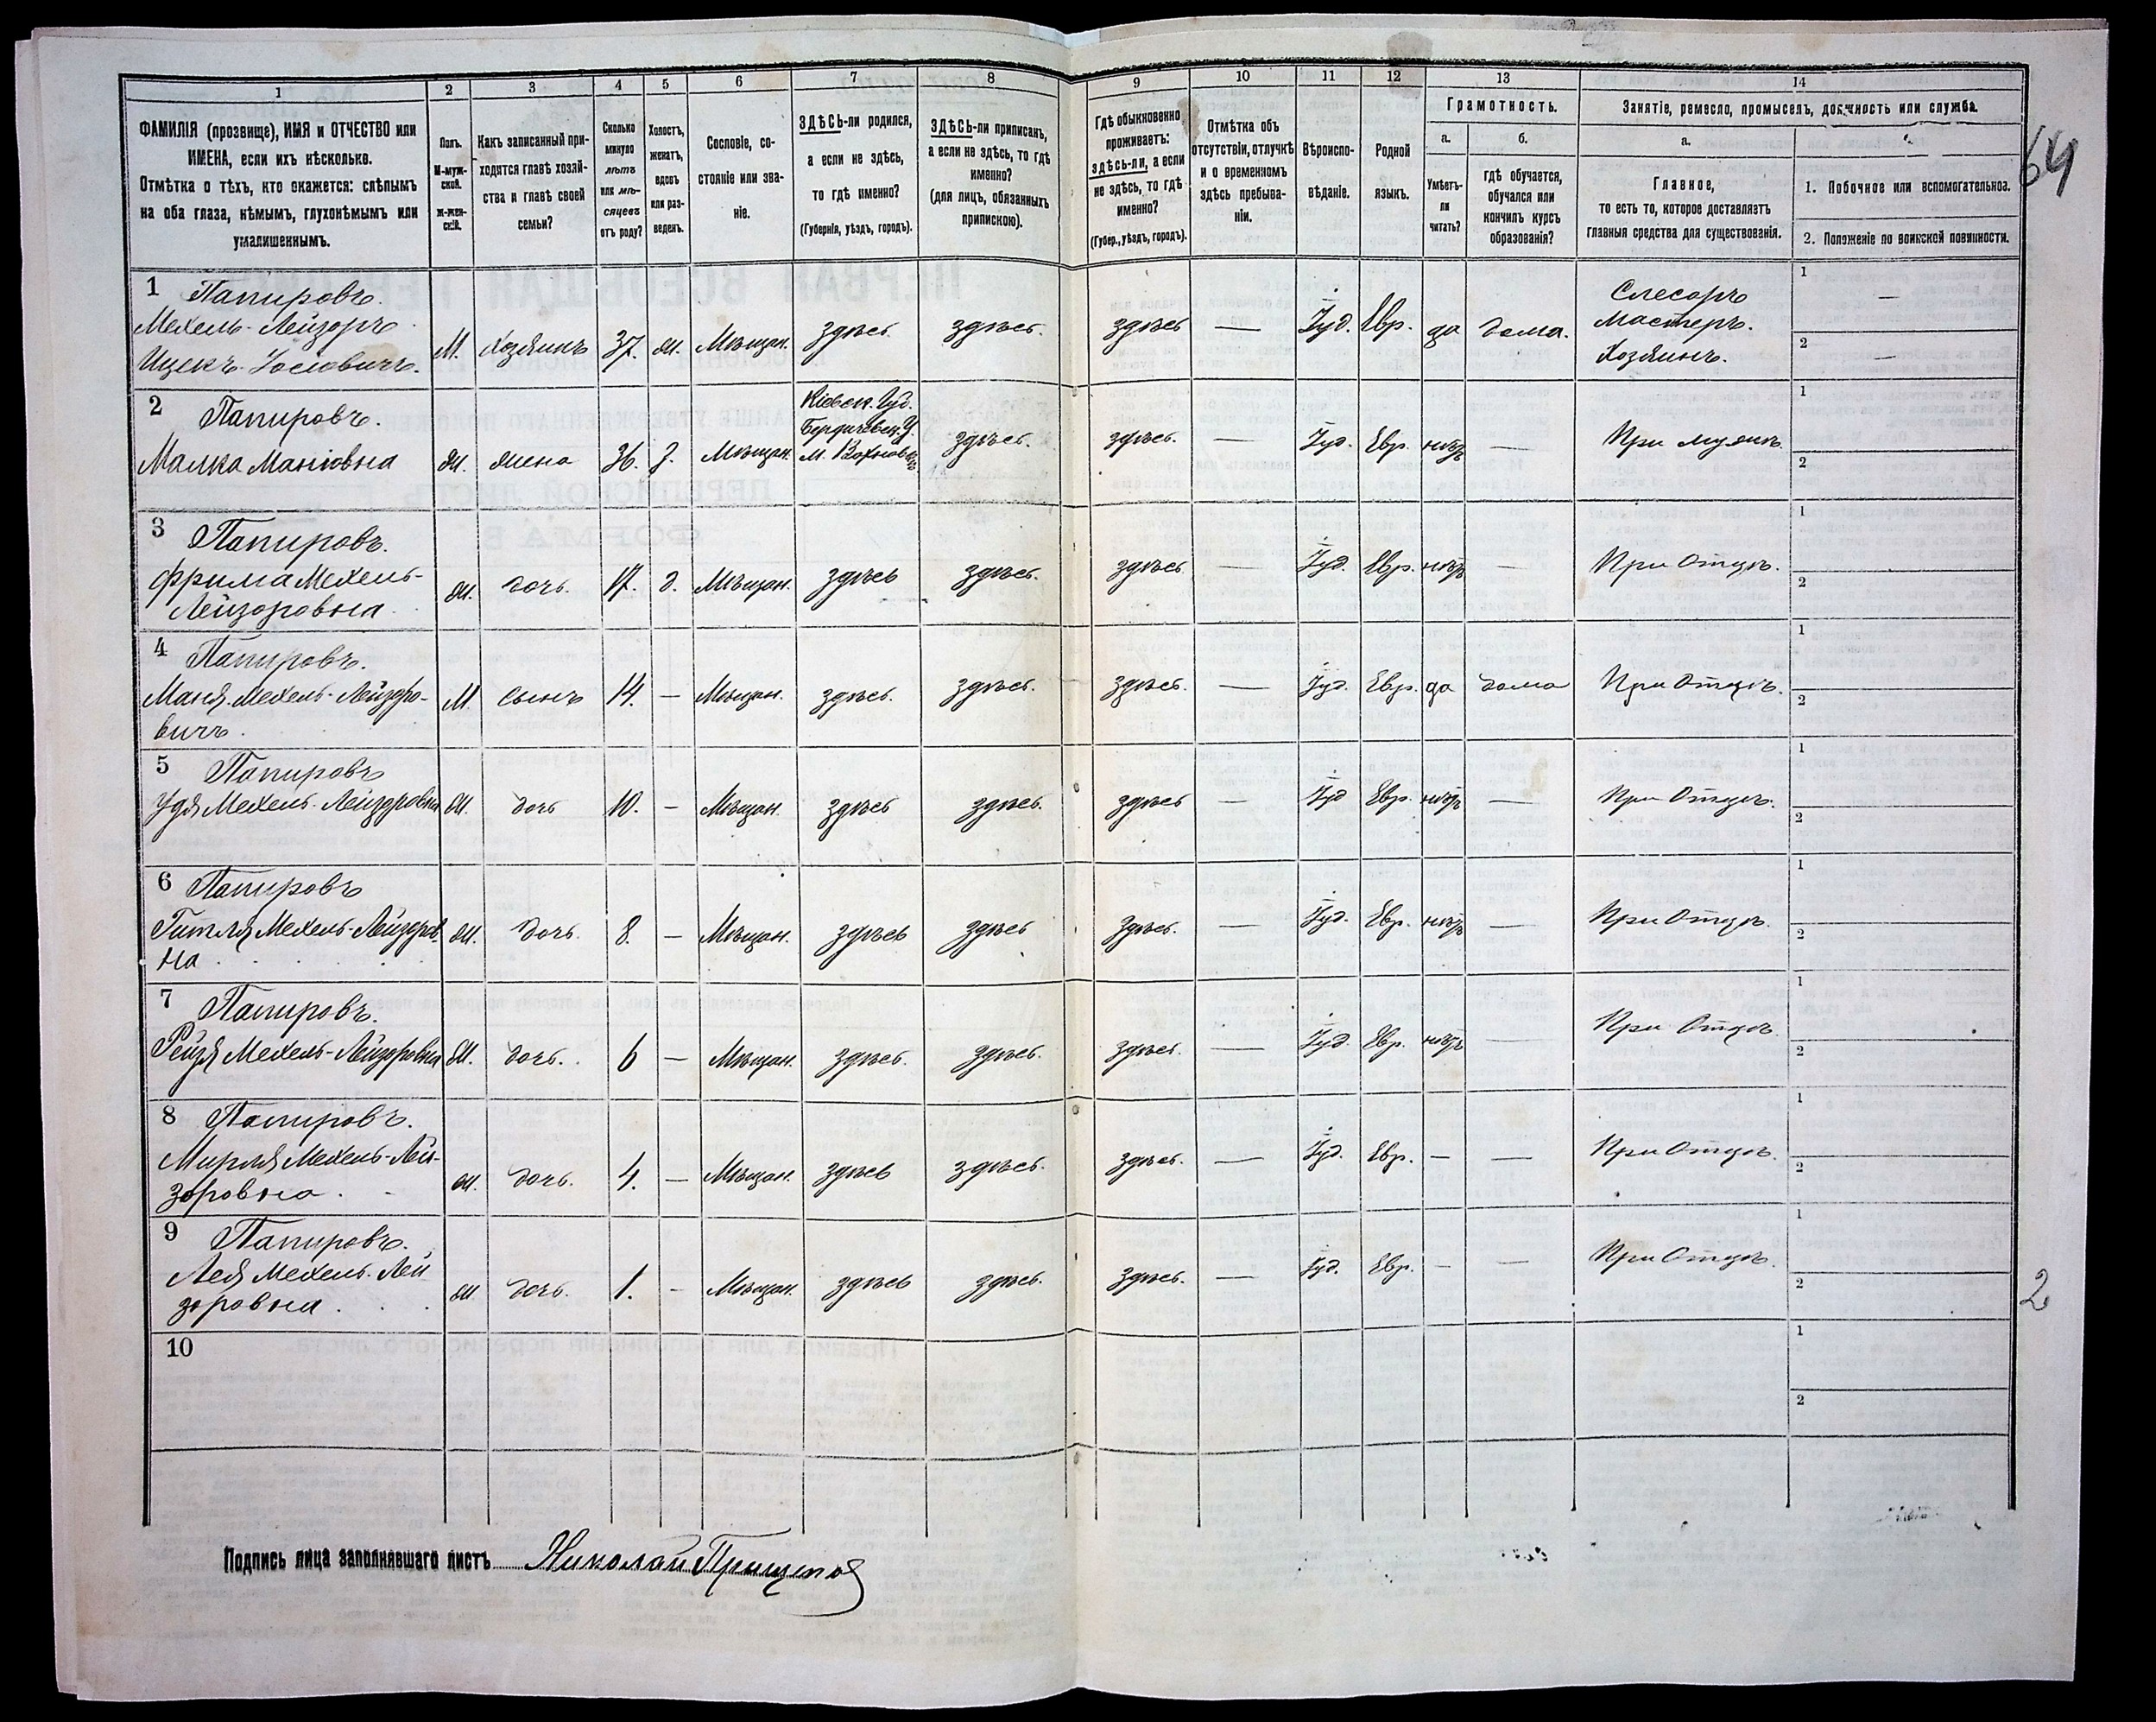 1 2 3 4 5 6 7 8 9 10 11 12 13 14
ФАМИЛІЯ (прозвище), ИМЯ и ОТЧЕСТВО или
ИМЕНА, если ихъ нѣсколько.
Отмѣтка о тѣхъ, кто окажется: слѣпымъ
на оба глаза, нѣмымъ, глухонѣмымъ или
умалишеннымъ.
Полъ.
М-муж-
ской.
ж-жен-
скій.
Какъ записанный при-
ходится главѣ хозяй-
ства и главѣ своей
семьи?
Сколько
минуло
лѣтъ
или мѣ-
сяцевъ
отъ роду?
Холостъ,
женатъ,
вдовъ
или раз-
веденъ.
Сословіе, со-
стояніе или зва-
ніе.
ЗДѢСЬ-ли родился,
а если не здѣсь,
то гдѣ именно?
(Губернія, уѣздъ, городъ).
ЗДѢСЬ-ли приписанъ,
а если не здѣсь, то гдѣ
именно?
(для лицъ, обязанныхъ
припискою).
Гдѣ обыкновенно
проживаетъ:
здѣсь-ли, а если
не здѣсь, то гдѣ
именно?
(Губер., уѣздъ, городъ).
Отмѣтка объ
отсутствіи, отлучкѣ
и о временномъ
здѣсь пребыва-
ніи.
Вѣроиспо-
вѣданіе.
Родной
языкъ.
Грамотность.
а.
Умѣетъ-
ли
читать?
б.
гдѣ обучается,
обучался или
кончилъ курсъ
образованія?
Занятіе, ремесло, промыселъ, должность или служба.
а.
Главное,
то есть то, которое доставляетъ
главныя средства для существованія.
1. Побочное или вспомогательное.
2. Положеніе по воинской повинности.
64
1 Папировъ.
Мехель-Лейзоръ
Ицекъ-Іосіовичъ.
М. Хозяинъ 37. ж. Мѣщан. здѣсь здѣсь. здѣсь — Іуд. Евр. да дома.
Слесарь
Мастеръ.
Хозяинъ.
1 —
2 —
2 Папировъ.
Малка Маніовна
ж. жена 36. з. Мѣщан.
Кіевск. Губ.
Бердичевск. У.
м.
здѣсь. здѣсь. — Іуд. Евр. нѣтъ — При мужѣ.
1
2
3 Папировъ.
Фрима Мехель-
Лейзоровна
ж. дочь. 17. д. Мѣщан. здѣсь здѣсь. здѣсь — Іуд. Евр. нѣтъ — При Отцѣ.
1
2
4 Папировъ.
Маня Мехель-Лейзоро-
вичъ.
М. сынъ 14. — Мѣщан. здѣсь. здѣсь. здѣсь. — Іуд. Евр. да дома При Отцѣ.
1
2
5 Папировъ
Удя Мехель-Лейзоровна
ж. дочь 10. — Мѣщан. здѣсь здѣсь. здѣсь — Іуд Евр. нѣтъ — При Отцѣ.
1
2
6 Папировъ
Гитля Мехель-Лейзоров
на
ж. дочь. 8. — Мѣщан. здѣсь здѣсь здѣсь. — Іуд. Евр. нѣтъ — При Отцѣ.
1
2
7 Папировъ.
Рейзя Мехель-Лейзоровна
ж. дочь. 6 — Мѣщан. здѣсь. здѣсь. здѣсь. — Іуд. Евр. нѣтъ — При Отцѣ
1
2
8 Папировъ.
Мирля Мехель-Лей-
зоровна.
ж. дочь. 4. — Мѣщан. здѣсь здѣсь. здѣсь. — Іуд. Евр. — — При Отцѣ.
1
2
9 Папировъ.
Лея Мехель-Лей
зоровна.
ж дочь. 1. — Мѣщан. здѣсь здѣсь. здѣсь. — Іуд. Евр. — — При Отцѣ.
1
2
2
10
1
2
Подпись лица заполнявшаго листъ Николай Прищепов